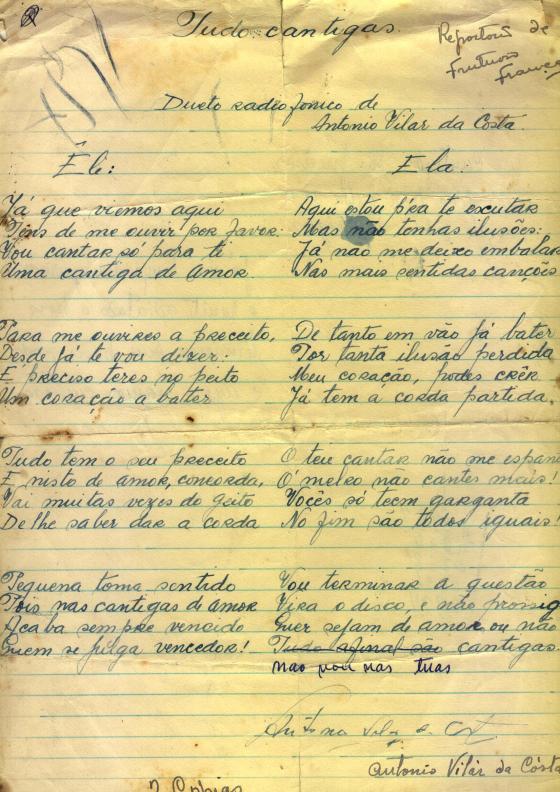 Tudo cantigas
Reportorio de
Frutuoso
França
Dueto radiofonico de
Antonio Vilar da Costa.
Êle:
Já que viemos aqui
Tens de me ouvir por favor.
Vou cantar só para ti
Uma cantiga de amor
Para me ouvires a preceito,
Desde já te vou dizer:
É preciso teres no peito
Um coração a bater
Tudo tem o seu preceito
E nisto de amor, concorda,
Vai muitas vezes do geito
De lhe saber dar a corda
Pequena toma sentido
Pois nas cantigas de amor
Acaba sempre vencido
Quem se julga vencedor!
Ela:
Aqui estou p'ra te escutar
Mas não tenhas ilusões:
Já não me deixo embalar
Nas mais sentidas canções
De tanto em vão já bater
Por tanta ilusão perdida
Meu coração, podes crêr
Já tem a corda partida.
O teu cantar não me espan
Ó melro não cantes mais!
Vocês só teem garganta
No fim são todos iguais!
Vou terminar a questão
Vira o disco, e não prossig
Quer sejam de amor ou não
Tudo afinal são cantigas.
não vou nas tuas
Antonio Vilar da Costa
2 Copias